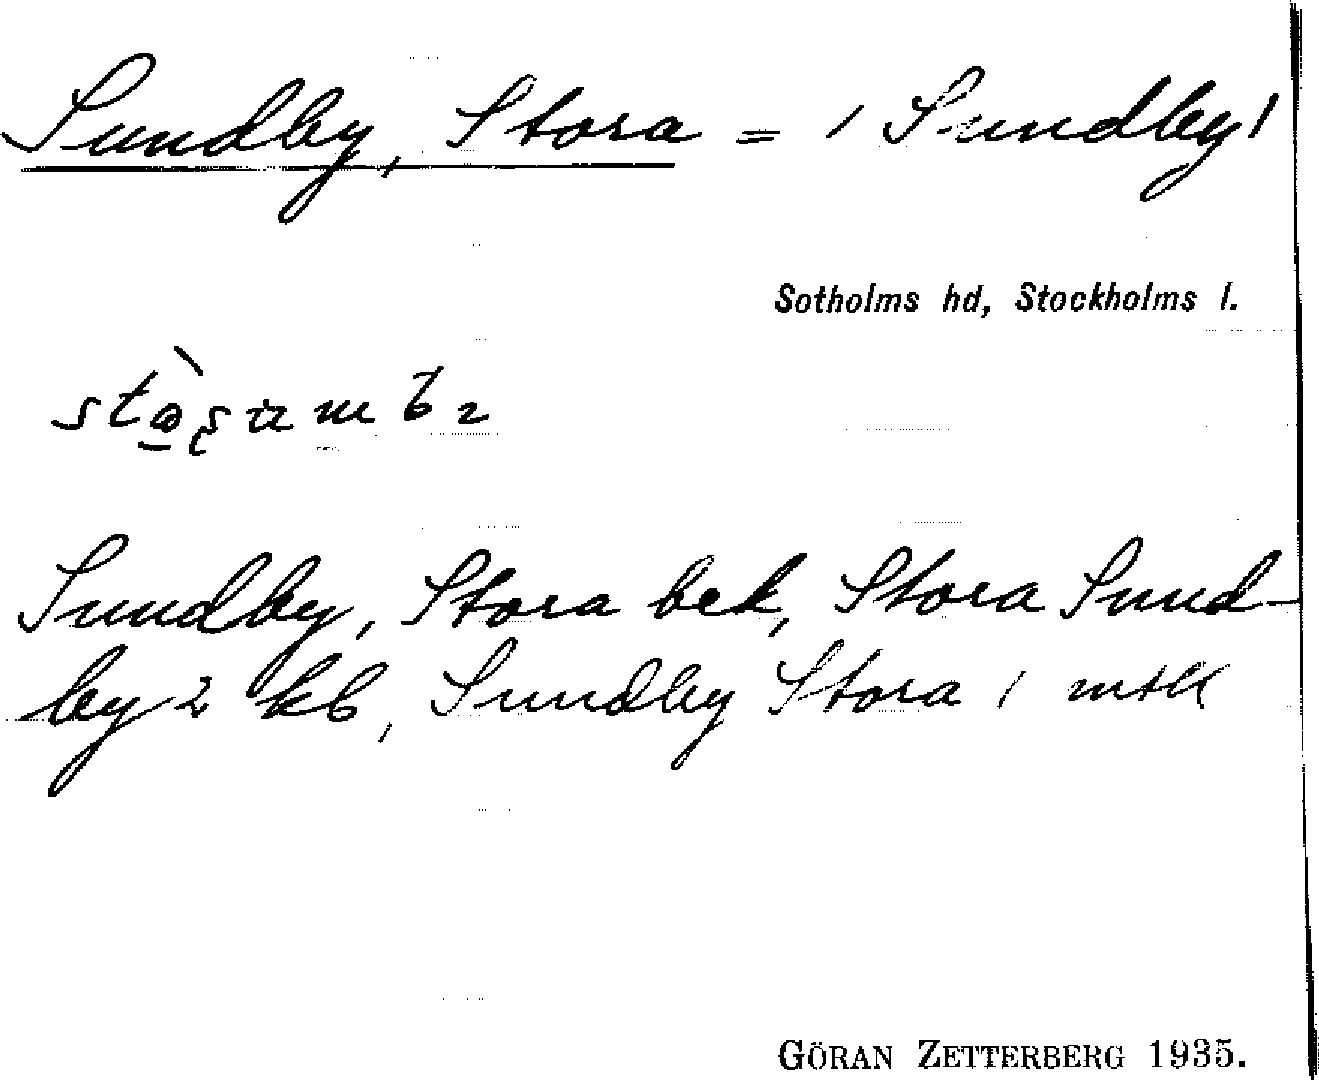 Sundby, Stora = / Sundby/
Sotholms hd, Stockholms l.
Sundby, Stora bek, Stora Sund-
by 2 kb, Sundby Stora 1 mtl
GÖRAN ZETTERBERG 1935.